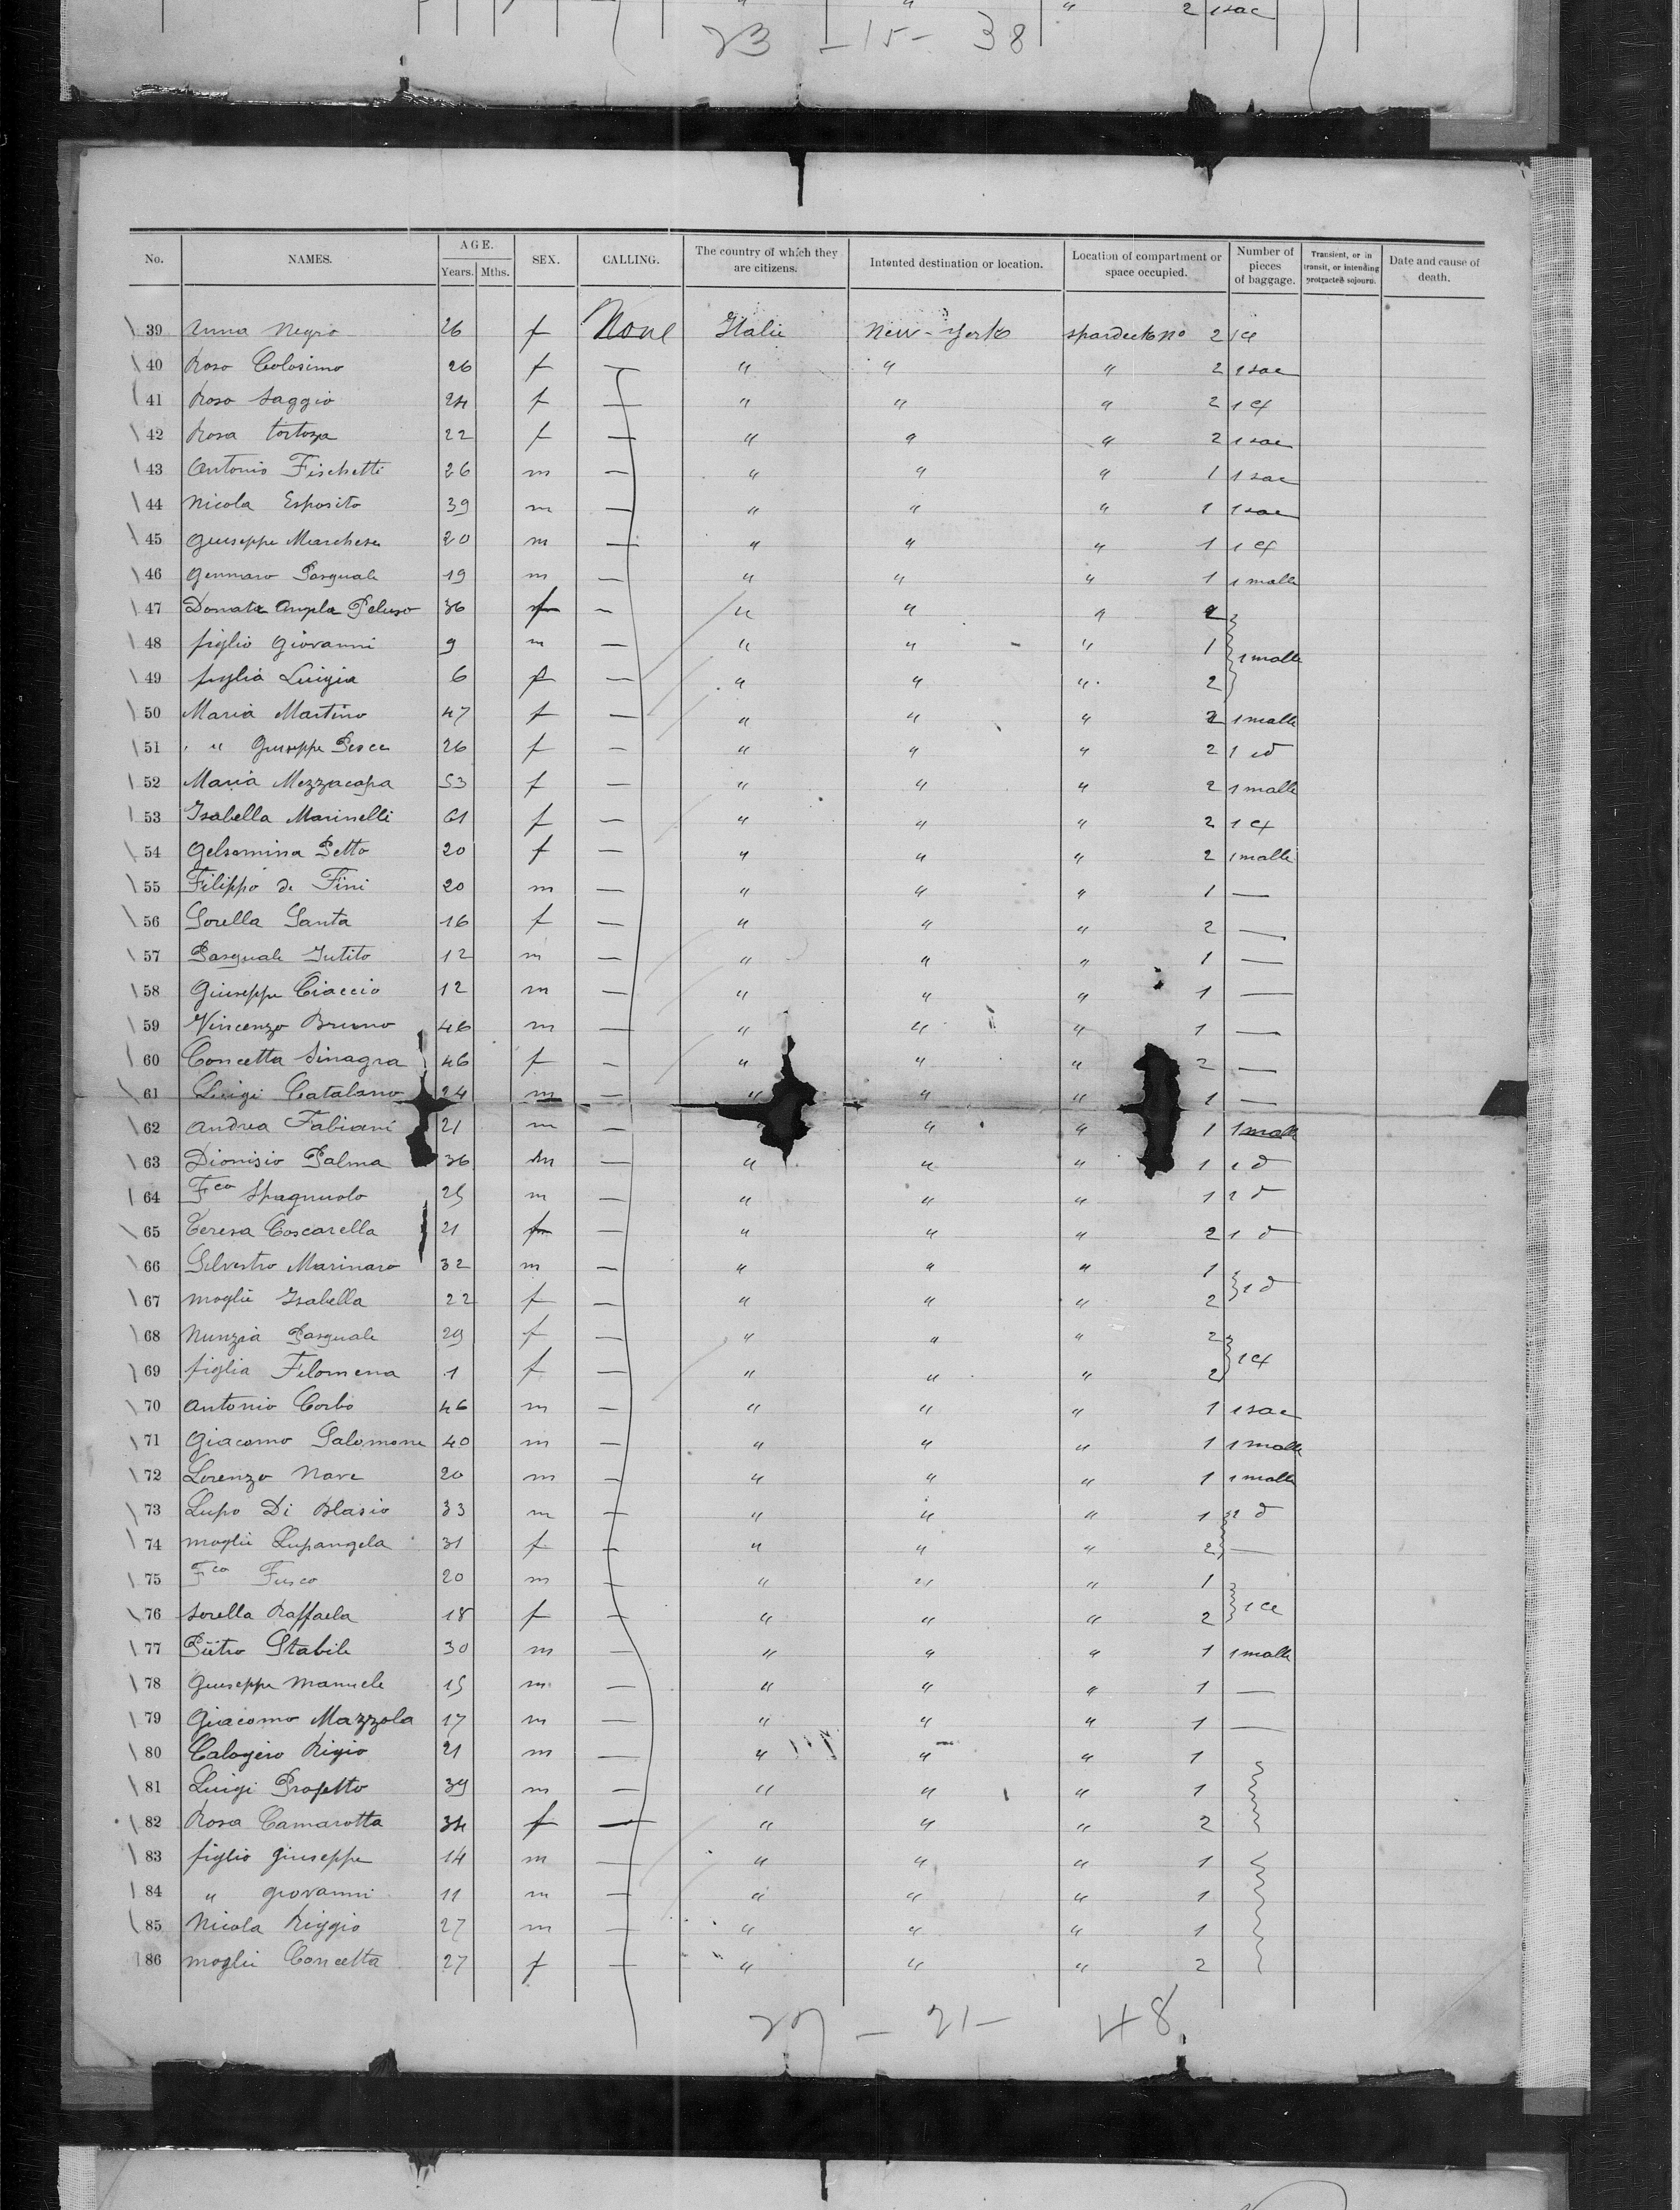 " " " 2 1 sac
23 - 15 - 38
No. NAMES. AGE. Years. Mths. SEX. CALLING. The country of which they are citizens. Intented destination or location. Location of compartment or space occupied. Number of pieces of baggage. Transient, or in transit, or intending protracted sojourn. Date and cause of death.
39 Anna Negro 26 f None Italie New-York spardeck No 2 1 cf
40 Rosa Colosimo 26 f — " " " 2 1 sac
41 Rosa Saggio 24 f — " " " 2 1 cf
42 Rosa Tortoza 22 f — " " " 2 1 sac
43 Antonio Fischetti 26 m — " " " 1 1 sac
44 Nicola Esposito 39 m — " " " 1 1 sac
45 Giuseppe Marchese 20 m — " " " 1 1 cf
46 Gennaro Pasquale 19 m — " " " 1 1 malle
47 Donata Angela Peluso 36 f — " " " 2
48 figlio Giovanni 9 m — " " " 1 1 malle
49 figlia Luigia 6 f — " " " 2
50 Maria Martino 47 f — " " " 2 1 malle
51 " Giuseppe Pesce 26 f — " " " 2 1 id
52 Maria Mezzacapa 53 f — " " " 2 1 malle
53 Isabella Marinelli 61 f — " " " 2 1 cf
54 Gelsomina Petto 20 f — " " " 2 1 malle
55 Filippo de Fini 20 m — " " " 1 —
56 Sorella Santa 16 f — " " " 2 —
57 Pasquale Intito 12 m — " " " 1 —
58 Giuseppe Ciaccio 12 m — " " " 1 —
59 Vincenzo Bruno 46 m — " " " 1 —
60 Concetta Sinagra 46 f — " " " 2 —
61 Luigi Catalano 24 m — " " " 1 —
62 Andrea Fabiani 21 m — " " 1 1 malle
63 Dionisio Palma 36 m — " " " 1 1 d
64 Fco Spagnuolo 25 m — " " " 1 2 d
65 Teresa Coscarella 21 f — " " " 2 1 d
66 Silvestro Marinaro 32 m — " " " 1
67 moglie Isabella 22 f — " " " 2 1 d
68 Nunzia Pasquale 29 f — " " " 2
69 figlia Filomena 1 f — " " " 2 1 cf
70 Antonio Corbo 46 m — " " " 1 1 sac
71 Giacomo Salomone 40 m — " " " 1 1 malle
72 Lorenzo Nave 20 m — " " " 1 1 malle
73 Lupo Di Blasio 33 m — " " " 1 2 d
74 moglie Lupangela 31 f — " " " 2 —
75 Fco Fusco 20 m — " " " 1
76 sorella Raffaela 18 f — " " " 2 1 cf
77 Pietro Stabile 30 m — " " " 1 1 malle
78 Giuseppe Manuele 15 m — " " " 1 —
79 Giacomo Mazzola 17 m — " " " 1 —
80 Calogero Rigio 21 m — " " " 1
81 Luigi Profetto 39 m — " " " 1
82 Rosa Camarotta 34 f — " " " 2
83 figlio Giuseppe 14 m — " " " 1
84 " Giovanni 11 m — " " " 1
85 Nicola Riggio 27 m — " " " 1
86 moglie Concetta 27 f — " " " 2
27 - 21 - 48